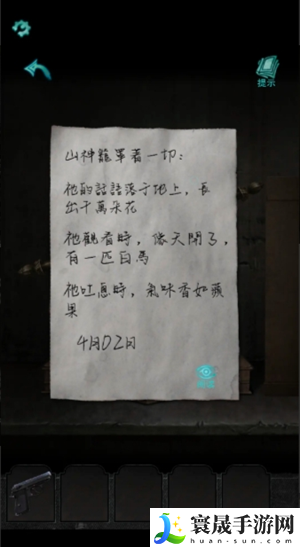 提示
山神籠罩着一切:
祂的話語落于地上，長
出千萬朵花
祂觀看時，
有一匹白馬
祂吐息時，氣味香如蘋
果
4月02日
寰晟手游网
huan-sun.com